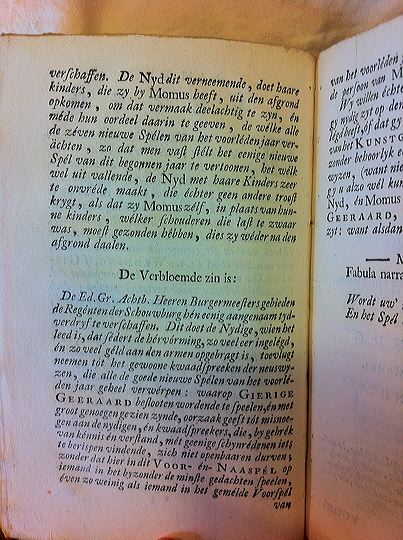 verschaffen. De Nyd dit verneemende, doet haare
kinders, die zy by Momus heeft, uit den afgrond
opkomen, om dat vermaak deelachtig te zyn, én
méde hun oordeel daarin te geeven, de wélke alle
de zéven nieuwe Spélen van het voorléden jaar ver-
áchten, zo dat men vast stélt het eenige nieuwe
Spél van dit begonnen jaar te vertoonen, het wélk
wel uit vallende, de Nyd met haare Kinders zeer
te onvréde maakt, die échter geen andre troost
krygt, als dat zy Momus zélf, in plaats van hun-
ne kinders, wélker schouderen die last te zwaar
was, moest gezonden hébben, dies zy wéder na den
afgrond daalen.
De Verbloemde zin is:
De Ed. Gr. Achtb. Heeren Burgermeesters gebieden
de Regénten der Schouwburg hén eenig aangenaam tyd-
verdryf te verschaffen. Dit doet de Nydige, wien het
leed is, dat sédert de hérvórming, zo veel eer ingelégd,
én zo veel géld aan den armen opgebragt is, toevlugt
neemen tót het gewoone kwaadspreeken der neuswy-
zen, die alle de goede nieuwe Spélen van het voorlé-
den jaar geheel verwérpen: waarop GIERIGE
GEERAARD beslooten wordende te speelen, én met
groot genoegen gezien zynde, oorzaak geeft tót misnoe-
gen aan de nydigen, én kwaadspreekers, die, by gebrék
van kénnis én verstand, mét geenige schynrédenen iets
te berispen vindende, zich niet openbaaren durven;
zonder dat hier in dit VOOR- én- NAASPÉL op
iemand in het byzonder de minste gedachten speelen,
éven zo weinig als iemand in het gemélde Voorspél
van
van het voorléden
de persoon van M
Wy willen échte
gy nydig zyt op den
lyd heeft, óf dat gy
van het KUNSTG
zonder behoorlyk
wyzen, (want nie
gy u alzo wél kun
Nyd, én Momus
GEERAARD,
zyt: want alsdan
Fabula narra
Wordt uw'
En het Spé